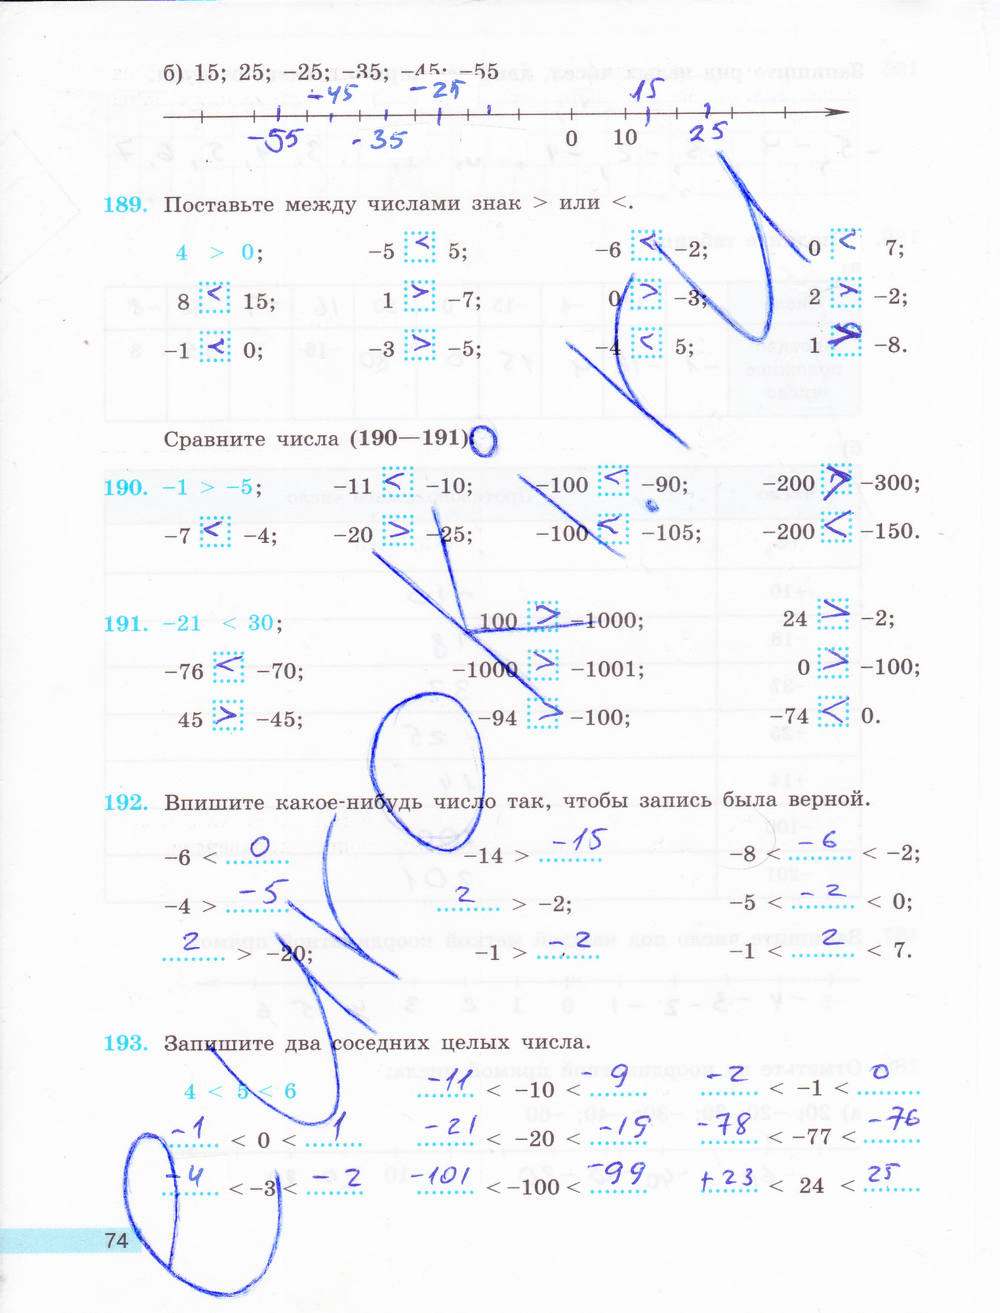 б) 15; 25; –25; –35; –45; –55
-45 -25 15
-55 -35 0 10 25
189. Поставьте между числами знак > или <.
4 > 0; –5 < 5; –6 < –2; 0 < 7;
8 < 15; 1 > –7; 0 > –3; 2 > –2;
–1 < 0; –3 > –5; –4 < 5; 1 > –8.
Сравните числа (190—191):
190. –1 > –5; –11 < –10; –100 < –90; –200 > –300;
–7 < –4; –20 > –25; –100 < –105; –200 < –150.
191. –21 < 30; 100 > –1000; 24 > –2;
–76 < –70; –1000 > –1001; 0 > –100;
45 > –45; –94 > –100; –74 < 0.
192. Впишите какое-нибудь число так, чтобы запись была верной.
–6 < 0 –14 > -15 –8 < -6 < –2;
–4 > -5 2 > –2; –5 < -2 < 0;
2 > –20; –1 > -2 –1 < 2 < 7.
193. Запишите два соседних целых числа.
4 < 5 < 6 -11 < –10 < -9 -2 < –1 < 0
-1 < 0 < 1 -21 < –20 < -19 -78 < –77 < -76
-4 < –3 < -2 -101 < –100 < -99 +23 < 24 < 25
74